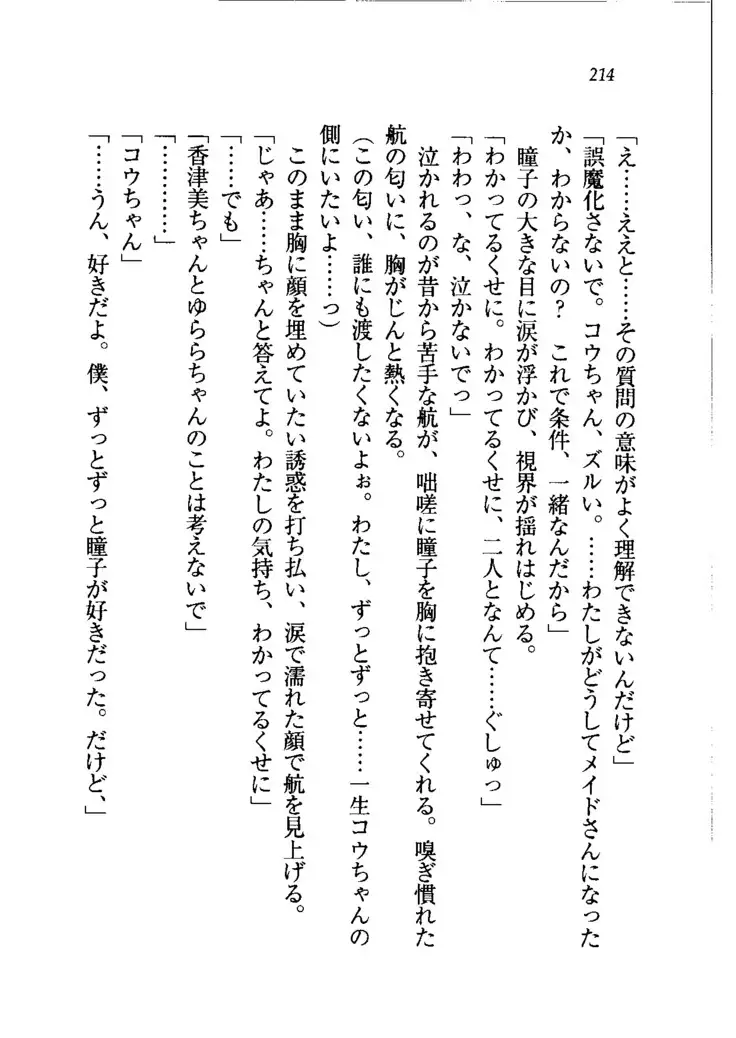 214
「え……ええと……その質問の意味がよく理解できないんだけど」
「誤魔化さないで。コウちゃん、ズルい。……わたしがどうしてメイドさんになった
か、わからないの？　これで条件、一緒なんだから」
　瞳子の大きな目に涙が浮かび、視界が揺れはじめる。
「わかってるくせに。わかってるくせに、二人となんて……ぐしゅっ」
「わわっ、な、泣かないでっ」
　泣かれるのが昔から苦手な航が、咄嗟に瞳子を胸に抱き寄せてくれる。嗅ぎ慣れた
航の匂いに、胸がじんと熱くなる。
（この匂い、誰にも渡したくないよぉ。わたし、ずっとずっと……一生コウちゃんの
側にいたいよ……っ）
　このまま胸に顔を埋めていたい誘惑を打ち払い、涙で濡れた顔で航を見上げる。
「じゃあ……ちゃんと答えてよ。わたしの気持ち、わかってるくせに」
「……でも」
「香津美ちゃんとゆららちゃんのことは考えないで」
「…………」
「コウちゃん」
「……うん、好きだよ。僕、ずっとずっと瞳子が好きだった。だけど、」